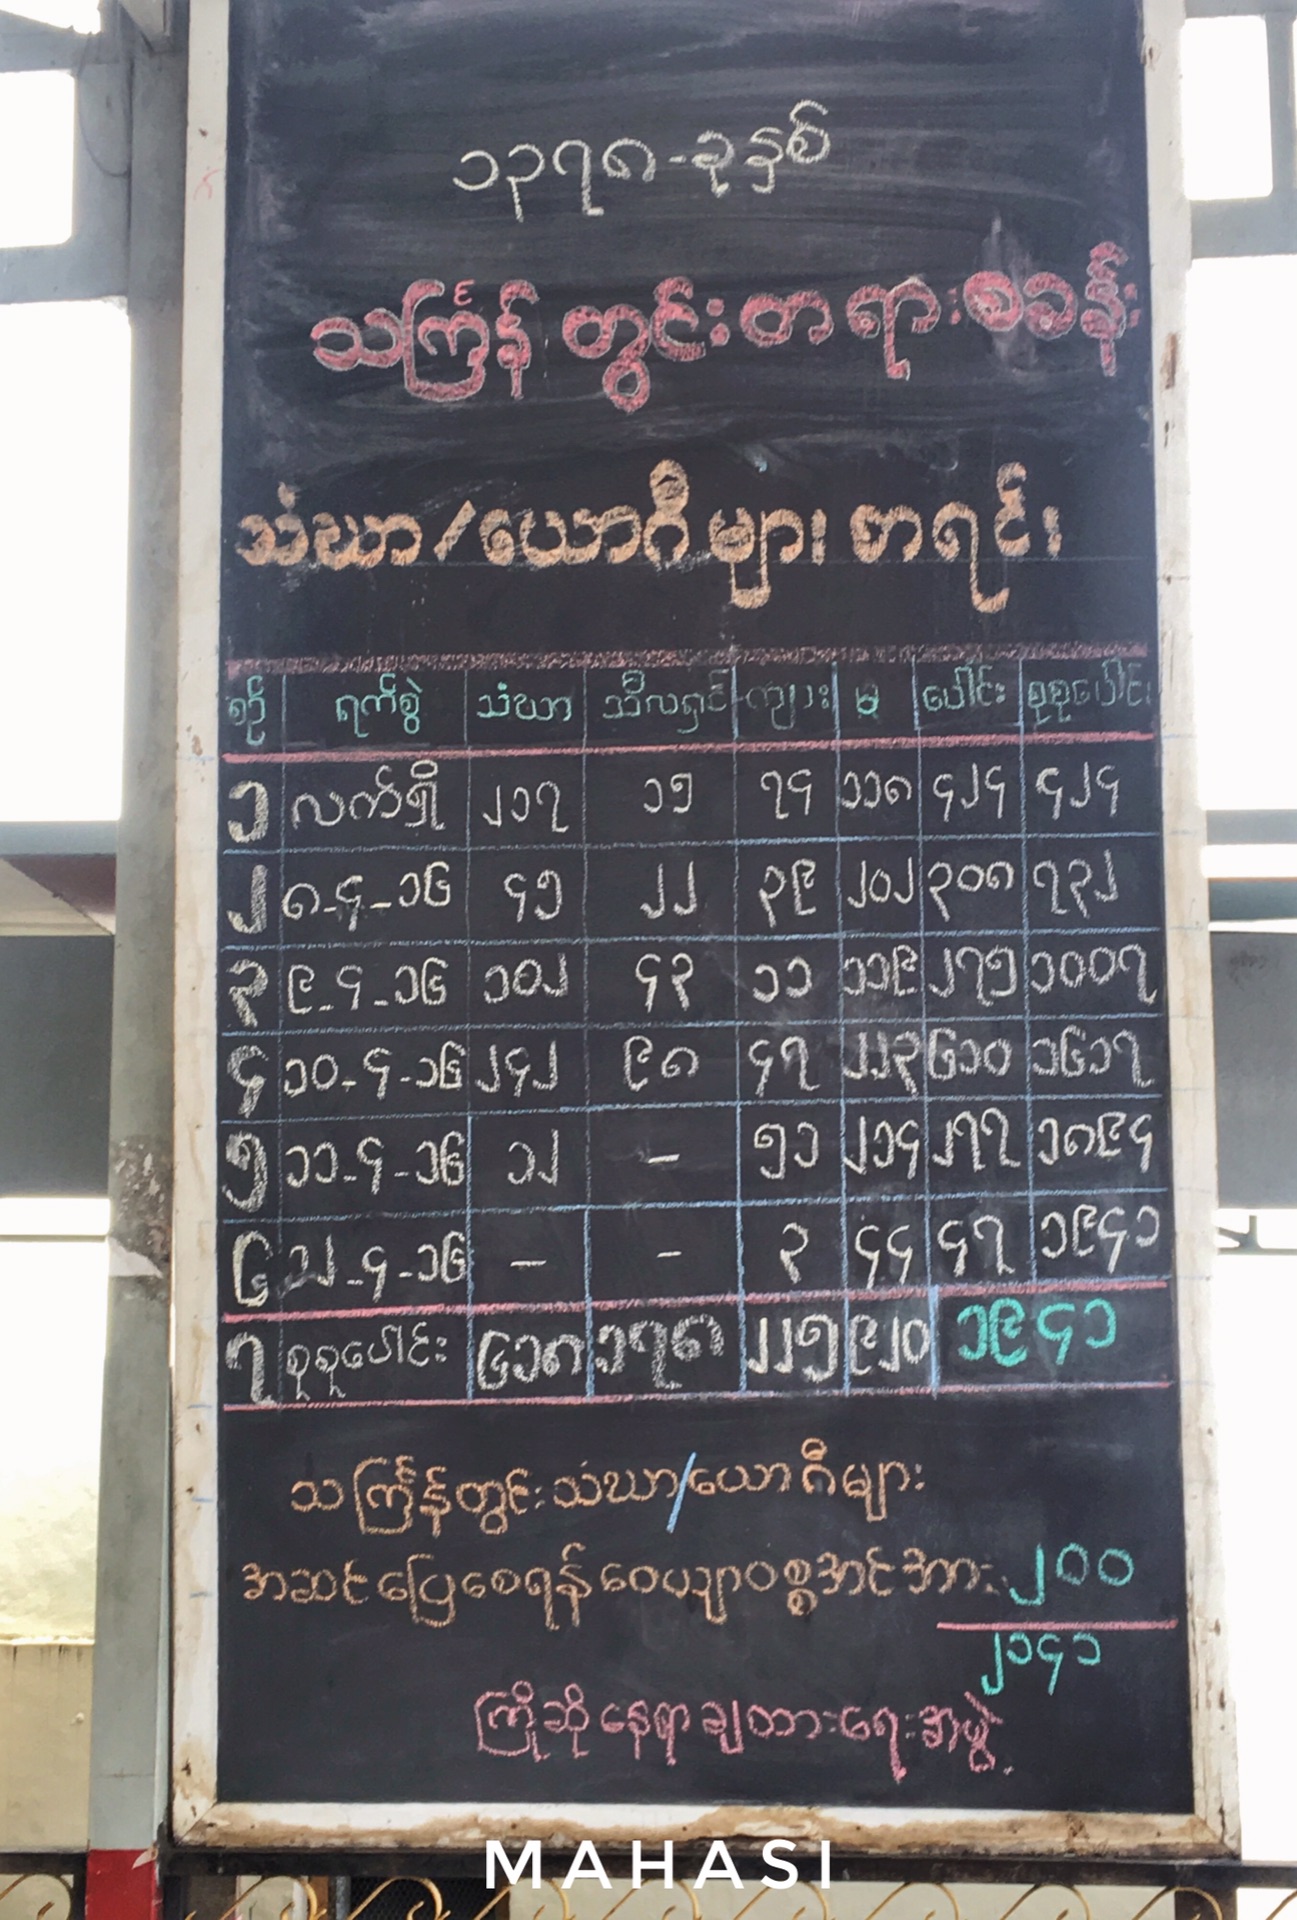 ၁၃၇၈-ခုနှစ်
သင်္ကြန်တွင်းတရားစခန်း
သံဃာ/ယောဂီများစာရင်း
စဉ် ရက်စွဲ သံဃာ သီလရှင် ကျား မ ပေါင်း စုစုပေါင်း
၁ လက်ရှိ ၂၁၇ ၁၅ ၇၄ ၁၁၈ ၄၂၄ ၄၂၄
၂ ၈-၄-၁၆ ၄၅ ၂၂ ၃၉ ၂၀၂ ၃၀၈ ၇၃၂
၃ ၉-၄-၁၆ ၁၀၂ ၄၃ ၁၁ ၁၁၉ ၂၇၅ ၁၀၀၇
၄ ၁၀-၄-၁၆ ၂၄၂ ၉၈ ၄၇ ၂၂၃ ၆၁၀ ၁၆၁၇
၅ ၁၁-၄-၁၆ ၁၂ - ၅၁ ၂၁၄ ၂၇၇ ၁၈၉၄
၆ ၁၂-၄-၁၆ - - ၃ ၄၄ ၄၇ ၁၉၄၁
၇ စုစုပေါင်း ၆၁၈ ၁၇၈ ၂၂၅ ၉၂၀ ၁၉၄၁
သင်္ကြန်တွင်းသံဃာ/ယောဂီများ
အဆင်ပြေစေရန်ဝေယျာဝစ္စအင်အား ၂၀၀
၂၁၄၁
ကြိုဆိုနေရာချထားရေးအဖွဲ့
MAHASI